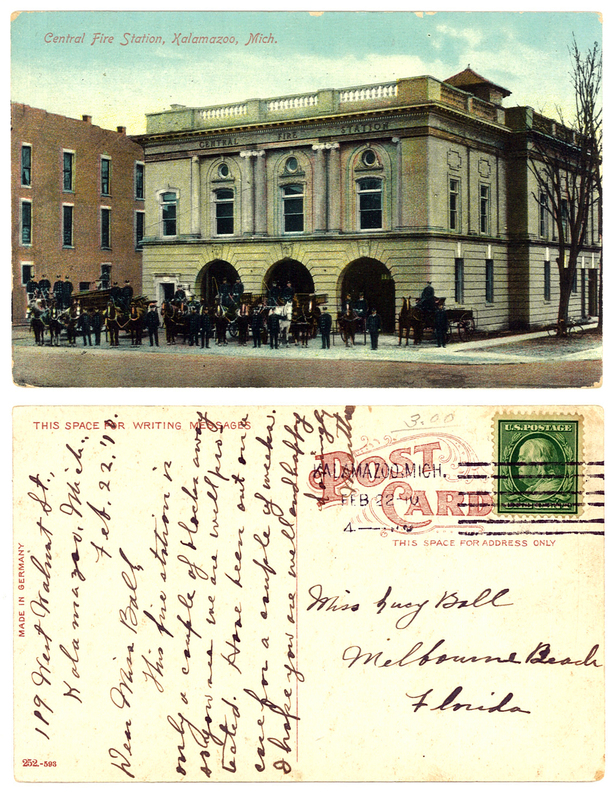 Central Fire Station, Kalamazoo, Mich.
CENTRAL FIRE STATION
THIS SPACE FOR WRITING MESSAGES
189 West Walnut St.,
Kalamazoo, Mich.,
Feb. 22. '10.
Dear Miss Ball,
This fire station is
only a couple of blocks away
so you see we are well pro-
tected. Have been out on a
case for a couple of weeks.
I hope you are well and happy
MADE IN GERMANY
252.-593
3.00
POST CARD
KALAMAZOO, MICH.
FEB 22 '10
4
U.S. POSTAGE
THIS SPACE FOR ADDRESS ONLY
Miss Lucy Ball
Melbourne Beach
Florida